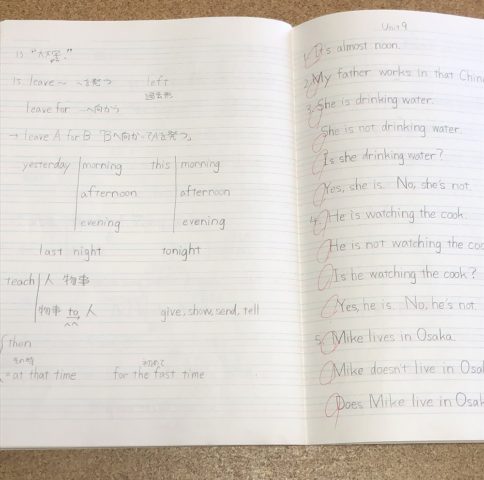 is
is leave ~ ~を発つ left
過去形
leave for ~へ向かう
→ leave A for B "Bへ向かってAを発つ。
yesterday morning this morning
afternoon afternoon
evening evening
last night tonight
teach 人 物事
物事 to 人 give, show, send, tell
then
その時 初めて
= at that time for the fast time
Unit 9
1. It's almost noon.
2. My father works in that Chin
3. She is drinking water.
She is not drinking water.
Is she drinking water?
Yes, she is. No, she's not.
4. He is watching the cook.
He is not watching the coo
Is he watching the cook?
Yes, he is. No, he's not.
5. Mike lives in Osaka.
Mike doesn't live in Osa
Does Mike live in Osak